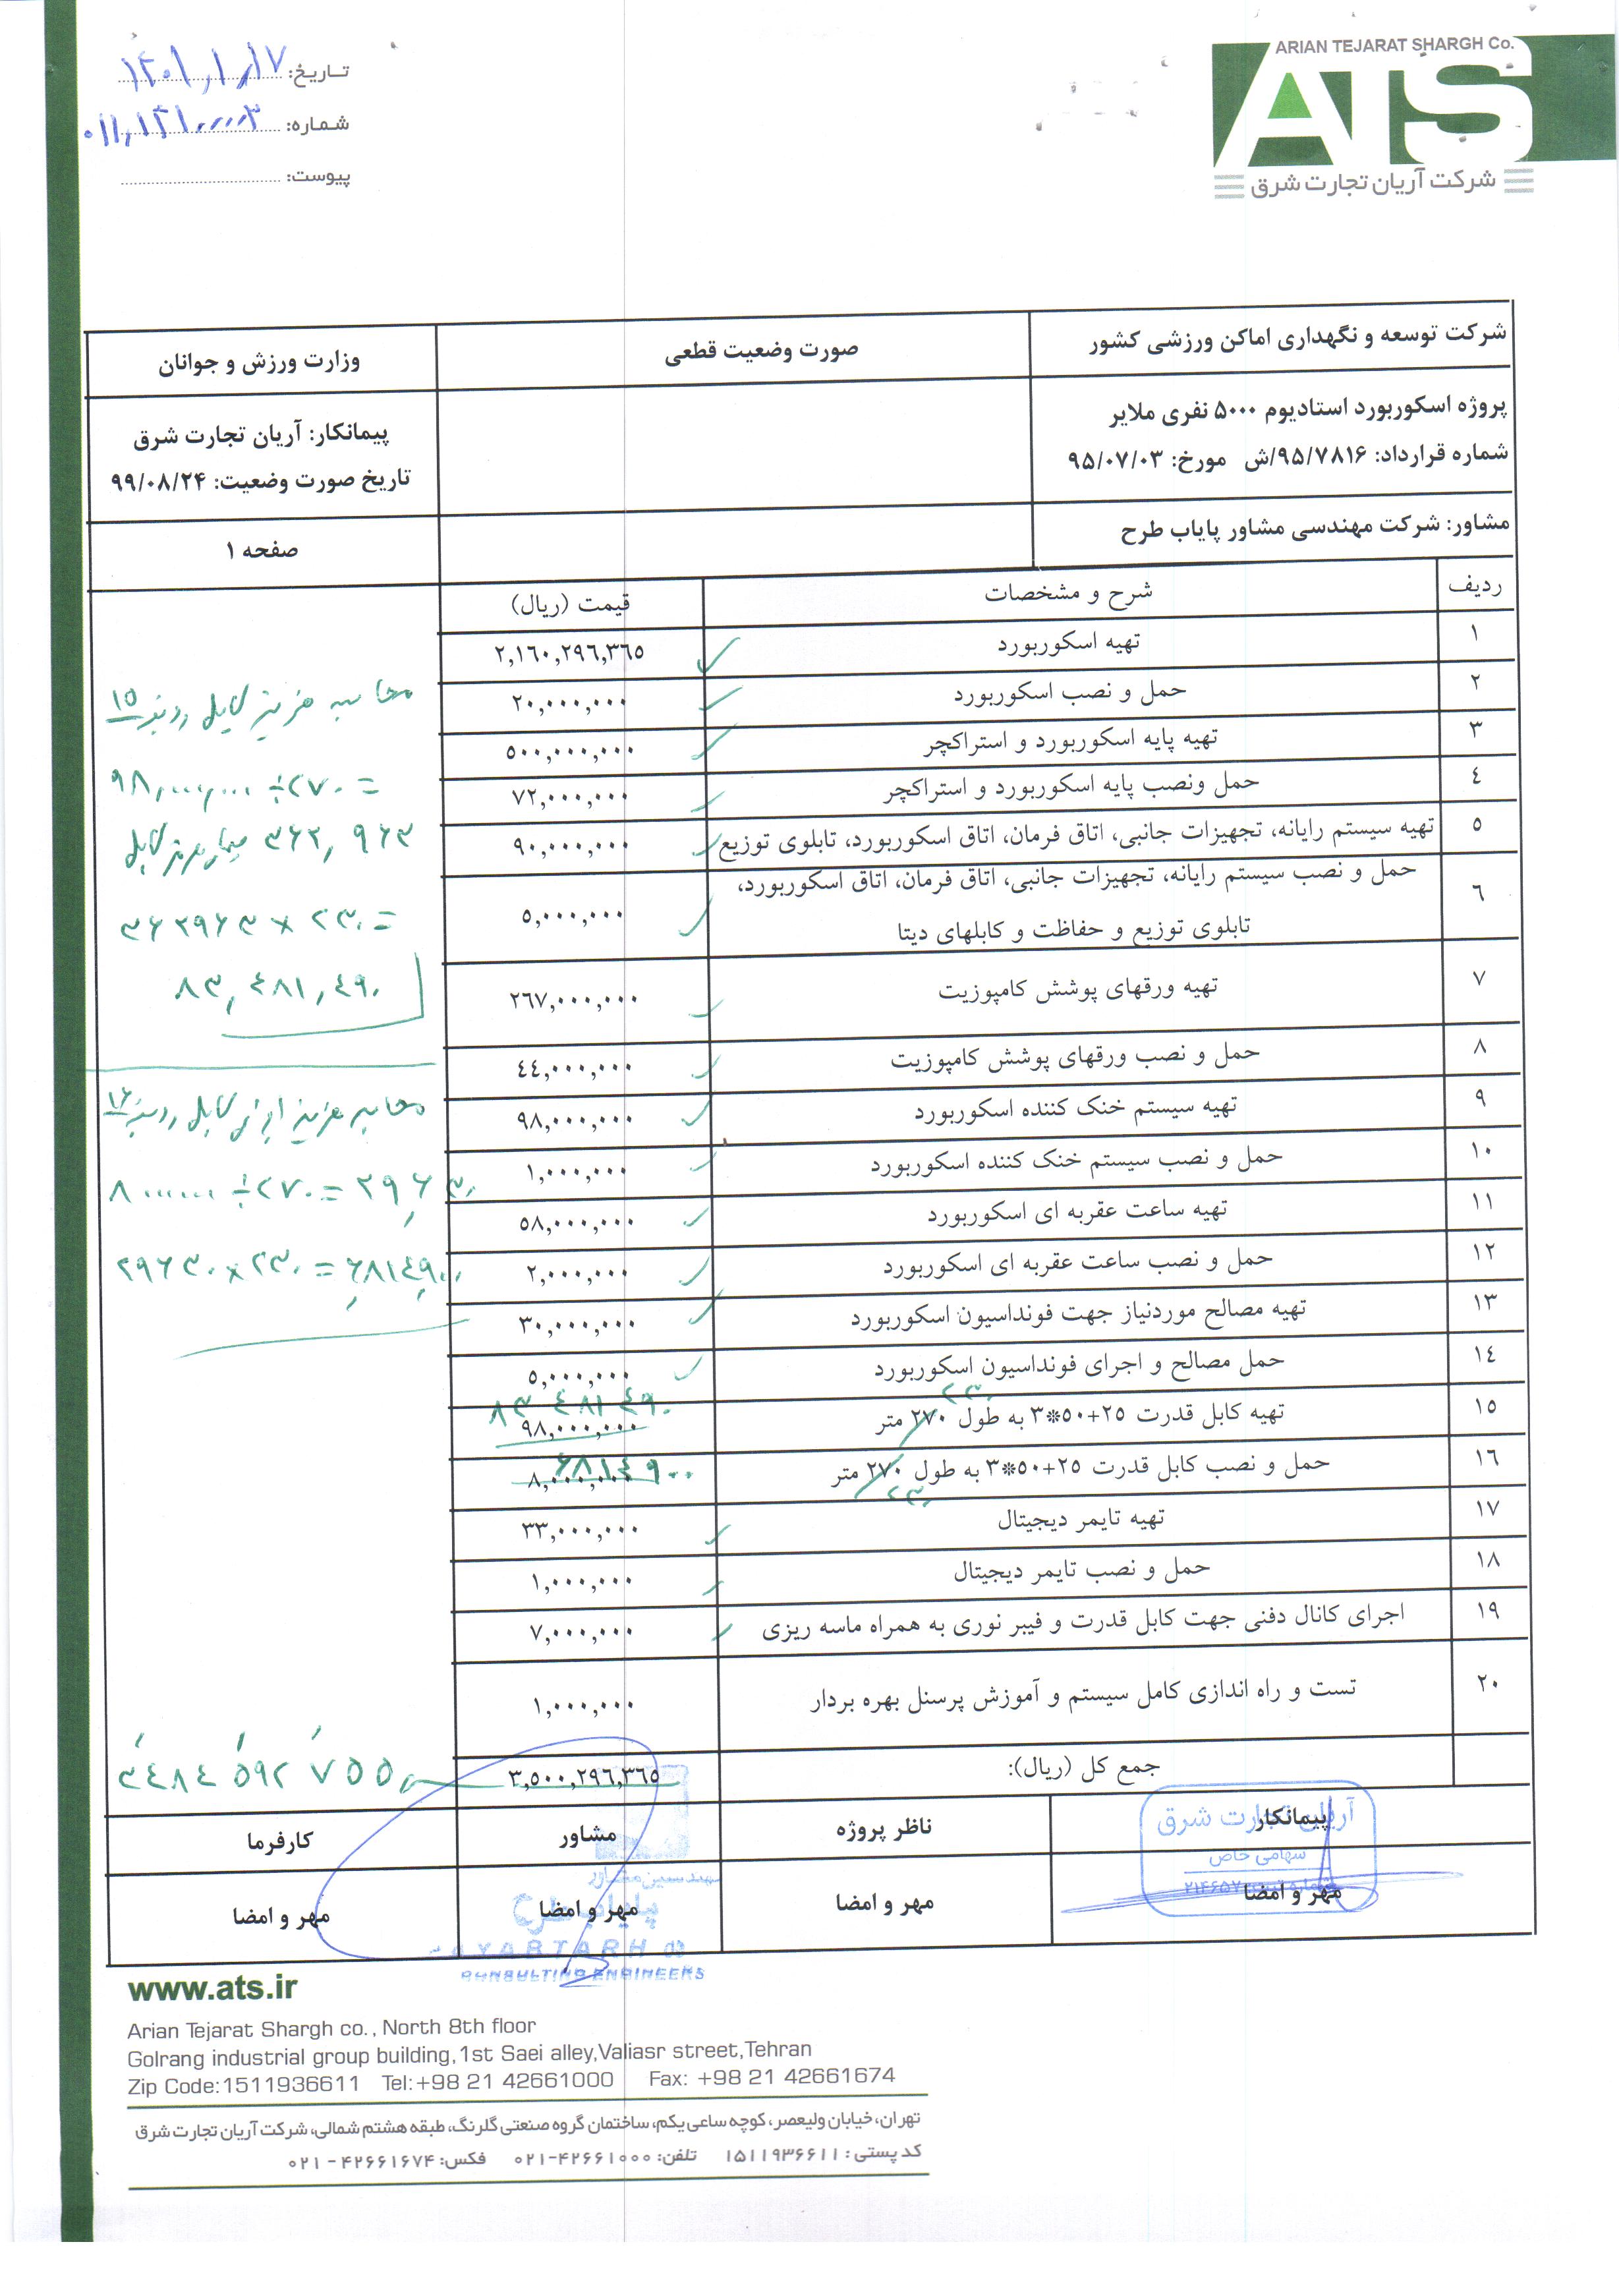 ARIAN TEJARAT SHARGH Co.
ATS
شرکت آریان تجارت شرق
تاریخ: ۱۴۰۱,۱,۱۷
شماره: ۰۱۱,۱۴۱۰۰۰۰۳
پیوست:
شرکت توسعه و نگهداری اماکن ورزشی کشور
صورت وضعیت قطعی
وزارت ورزش و جوانان
پروژه اسکوربورد استادیوم ۵۰۰۰ نفری ملایر
شماره قرارداد: ۹۵/۷۸۱۶/ش مورخ: ۹۵/۰۷/۰۳
پیمانکار: آریان تجارت شرق
تاریخ صورت وضعیت: ۹۹/۰۸/۲۴
مشاور: شرکت مهندسی مشاور پایاب طرح
صفحه ۱
ردیف شرح و مشخصات قیمت (ریال)
۱ تهیه اسکوربورد ۲,۱٦۰,۲۹٦,۳٦٥
۲ حمل و نصب اسکوربورد ۲۰,۰۰۰,۰۰۰
۳ تهیه پایه اسکوربورد و استراکچر ٥۰۰,۰۰۰,۰۰۰
٤ حمل ونصب پایه اسکوربورد و استراکچر ۷۲,۰۰۰,۰۰۰
٥ تهیه سیستم رایانه، تجهیزات جانبی، اتاق فرمان، اتاق اسکوربورد، تابلوی توزیع ۹۰,۰۰۰,۰۰۰
٦ حمل و نصب سیستم رایانه، تجهیزات جانبی، اتاق فرمان، اتاق اسکوربورد،
تابلوی توزیع و حفاظت و کابلهای دیتا ٥,۰۰۰,۰۰۰
۷ تهیه ورقهای پوشش کامپوزیت ۲٦۷,۰۰۰,۰۰۰
۸ حمل و نصب ورقهای پوشش کامپوزیت ٤٤,۰۰۰,۰۰۰
۹ تهیه سیستم خنک کننده اسکوربورد ۹۸,۰۰۰,۰۰۰
۱۰ حمل و نصب سیستم خنک کننده اسکوربورد ۱,۰۰۰,۰۰۰
۱۱ تهیه ساعت عقربه ای اسکوربورد ٥۸,۰۰۰,۰۰۰
۱۲ حمل و نصب ساعت عقربه ای اسکوربورد ۲,۰۰۰,۰۰۰
۱۳ تهیه مصالح موردنیاز جهت فونداسیون اسکوربورد ۳۰,۰۰۰,۰۰۰
۱٤ حمل مصالح و اجرای فونداسیون اسکوربورد ٥,۰۰۰,۰۰۰
۲۳۰ ۸۳ ٤۸۱ ٤۹۰
۱٥ تهیه کابل قدرت ۲٥+٥۰*۳ به طول ۲۷۰ متر ۹۸,۰۰۰,۰۰۰
۱٦ حمل و نصب کابل قدرت ۲٥+٥۰*۳ به طول ۲۷۰ متر ۸,۰۰۰,۰۰۰
۲۳۰ ۶۸۱٤۹۰۰
۱۷ تهیه تایمر دیجیتال ۳۳,۰۰۰,۰۰۰
۱۸ حمل و نصب تایمر دیجیتال ۱,۰۰۰,۰۰۰
۱۹ اجرای کانال دفنی جهت کابل قدرت و فیبر نوری به همراه ماسه ریزی ۷,۰۰۰,۰۰۰
۲۰ تست و راه اندازی کامل سیستم و آموزش پرسنل بهره بردار ۱,۰۰۰,۰۰۰
جمع کل (ریال): ۳,٥۰۰,۲۹٦,۳٦٥
۳٤۸٤ ۵۹۲ ۷۵۵
محاسبه هزینه کابل ردیف ۱۵
۹۸,۰۰۰,۰۰۰ ÷ ۲۷۰ =
۳۶۲,۹۶۳ کابل
۳۶۲۹۶۳ × ۲۳۰ =
۸۳,٤۸۱,٤۹۰
محاسبه هزینه اجرای کابل ردیف ۱۶
۸۰۰۰۰۰۰ ÷ ۲۷۰ = ۲۹,۶۳۰
۲۹۶۳۰ × ۲۳۰ = ۶,۸۱٤,۹۰۰
پیمانکار ناظر پروژه مشاور کارفرما
مهر و امضا مهر و امضا مهر و امضا مهر و امضا
آریان تجارت شرق
سهامی خاص
مهندسین مشاور
پایاب طرح
PAYABTARH
CONSULTING ENGINEERS
www.ats.ir
Arian Tejarat Shargh co., North 8th floor
Golrang industrial group building,1st Saei alley,Valiasr street,Tehran
Zip Code:1511936611 Tel:+98 21 42661000 Fax: +98 21 42661674
تهران، خیابان ولیعصر، کوچه ساعی یکم، ساختمان گروه صنعتی گلرنگ، طبقه هشتم شمالی، شرکت آریان تجارت شرق
کد پستی : ۱۵۱۱۹۳۶۶۱۱ تلفن: ۴۲۶۶۱۰۰۰-۰۲۱ فکس: ۴۲۶۶۱۶۷۴ - ۰۲۱